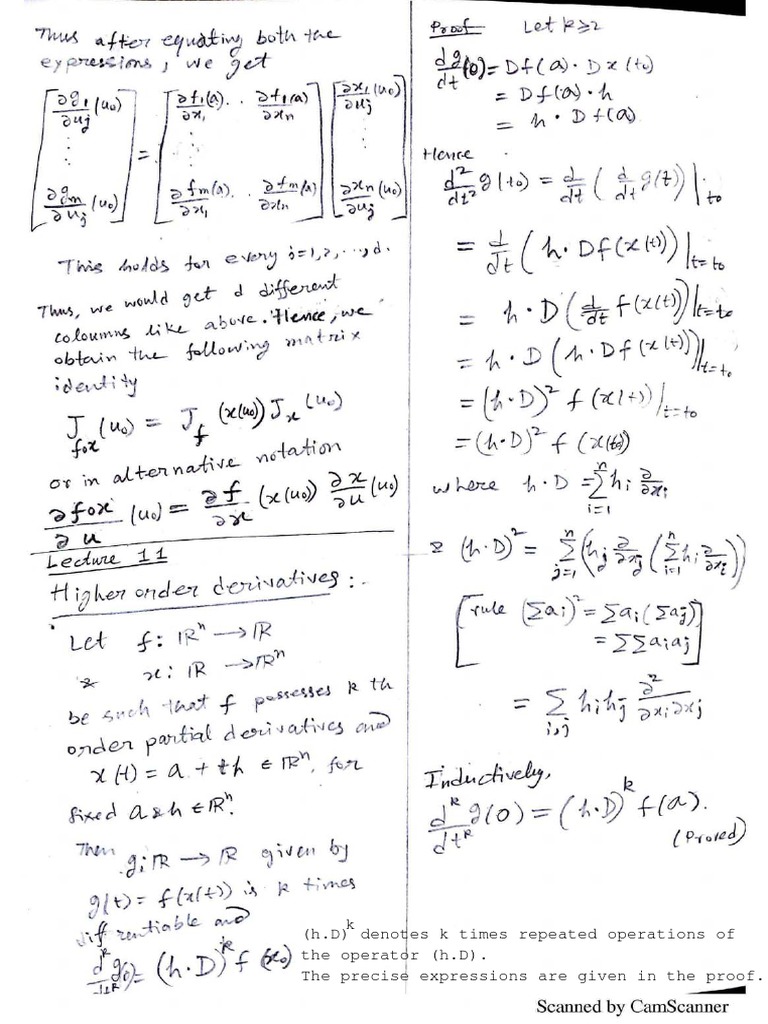 Thus after equating both the
expressions, we get
[∂g₁/∂uⱼ (u₀) ⋮ ∂gₘ/∂uⱼ (u₀)] = [∂f₁(a)/∂x₁ .. ∂f₁(a)/∂xₙ ⋮ ∂fₘ(a)/∂x₁ .. ∂fₘ(a)/∂xₙ] [∂x₁/∂uⱼ (u₀) ⋮ ∂xₙ/∂uⱼ (u₀)]
This holds for every j=1,2,...,d.
Thus, we would get d different
coloumns like above. Hence, we
obtain the following matrix
identity
J_{fox} (u₀) = J_f (x(u₀)) J_x (u₀)
or in alternative notation
∂fox/∂u (u₀) = ∂f/∂x (x(u₀)) ∂x/∂u (u₀)
Lecture 11
Higher order derivatives :-
Let f: ℝⁿ → ℝ
& x: ℝ → ℝⁿ
be such that f possesses k th
order partial derivatives and
x(t) = a + th ∈ ℝⁿ, for
fixed a & h ∈ ℝⁿ.
Then g: ℝ → ℝ given by
g(t) = f(x(t)) is k times
differentiable and
dᵏ/dtᵏ g(0) = (h·D)ᵏ f (x₀)
Proof Let k≥2
dg/dt (0) = Df(a) · Dx(t₀)
= Df(a) · h
= h · Df(a)
Hence
d²/dt² g(t₀) = d/dt ( d/dt g(t) ) |t₀
= d/dt ( h · Df(x(t)) ) |t=t₀
= h · D ( d/dt f(x(t)) ) |t=t₀
= h · D ( h · Df(x(t)) ) |t=t₀
= (h·D)² f(x(t)) |t=t₀
= (h·D)² f(x(t₀))
where h·D = Σ_{i=1}^{n} hᵢ ∂/∂xᵢ
& (h·D)² = Σ_{j=1}^{n} ( hⱼ ∂/∂xⱼ ( Σ_{i=1}^{n} hᵢ ∂/∂xᵢ ) )
[rule (Σaᵢ)² = Σaᵢ (Σaⱼ)
= ΣΣ aᵢaⱼ]
= Σ_{i,j} hᵢ hⱼ ∂²/∂xᵢ∂xⱼ
Inductively,
dᵏ/dtᵏ g(0) = (h·D)ᵏ f(a).
(Proved)
(h.D)ᵏ denotes k times repeated operations of
the operator (h.D).
The precise expressions are given in the proof.
Scanned by CamScanner